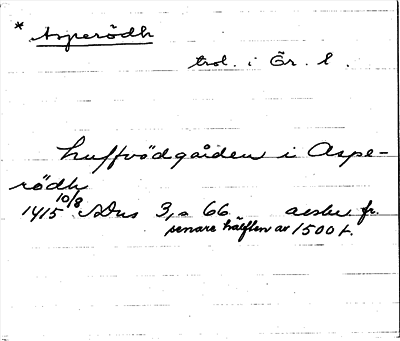 * Asperödh
trol. i Ör. l.
huffvödgården i Aspe-
rödh
1415 10/8 SDns 3, s 66 avskr. fr.
senare hälften av 1500 t.